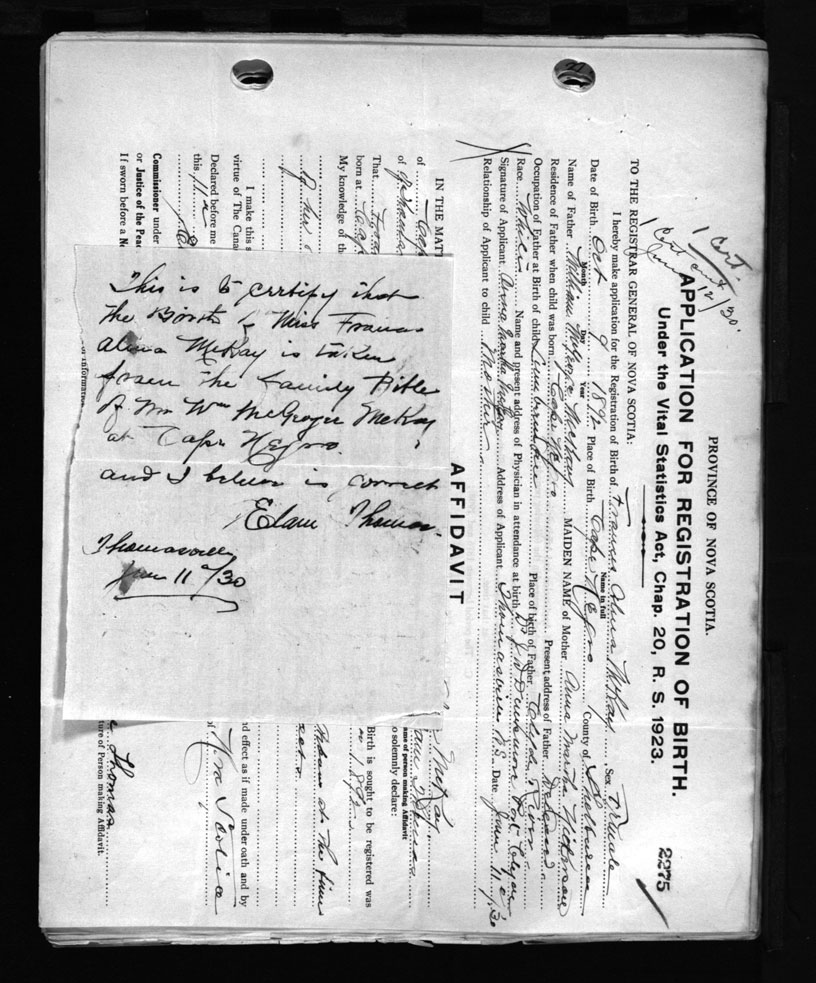 PROVINCE OF NOVA SCOTIA.
APPLICATION FOR REGISTRATION OF BIRTH.
Under the Vital Statistics Act, Chap. 20, R. S. 1923.
2275
1 Cert.
1 Cert
June 12/30.
TO THE REGISTRAR GENERAL OF NOVA SCOTIA:
I hereby make application for the Registration of Birth of Frances Alma McKay Sex Female
Name in full
Date of Birth Oct 9 1892 Place of Birth Cape Negro County of Shelburne
Month Day Year
Name of Father William McGregor McKay MAIDEN NAME of Mother Anna Martha
Residence of Father when child was born Cape Negro Present address of Father Deceased
Occupation of Father at Birth of child Lumberman Place of birth of Father Clyde River
Race White Name and present address of Physician in attendance at birth Dr Port Clyde
Signature of Applicant Anna Martha Address of Applicant Thomasville N.S. Date June 11th/30
Relationship of Applicant to child Mother
AFFIDAVIT
IN THE MATT McKay
of Cap
of Thomas
name of person making Affidavit
o solemnly declare:
That Fran Birth is sought to be registered was
born at Cap 1892
My knowledge of th at the time
by her
I make this s nd effect as if made under oath and by
virtue of The Cana
Declared before me of Nova Scotia
this 11th
Commissioner under
or Justice of the Peac Thomas
If sworn before a No ture of Person making Affidavit.
or information
This is to certify that
the Birth of Miss Frances
Alma McKay is taken
from the Family Bible
of Mr Wm McGregor McKay
at Cape Negro.
and I believe is correct
Elam Thomas.
Thomasville
June 11th/30